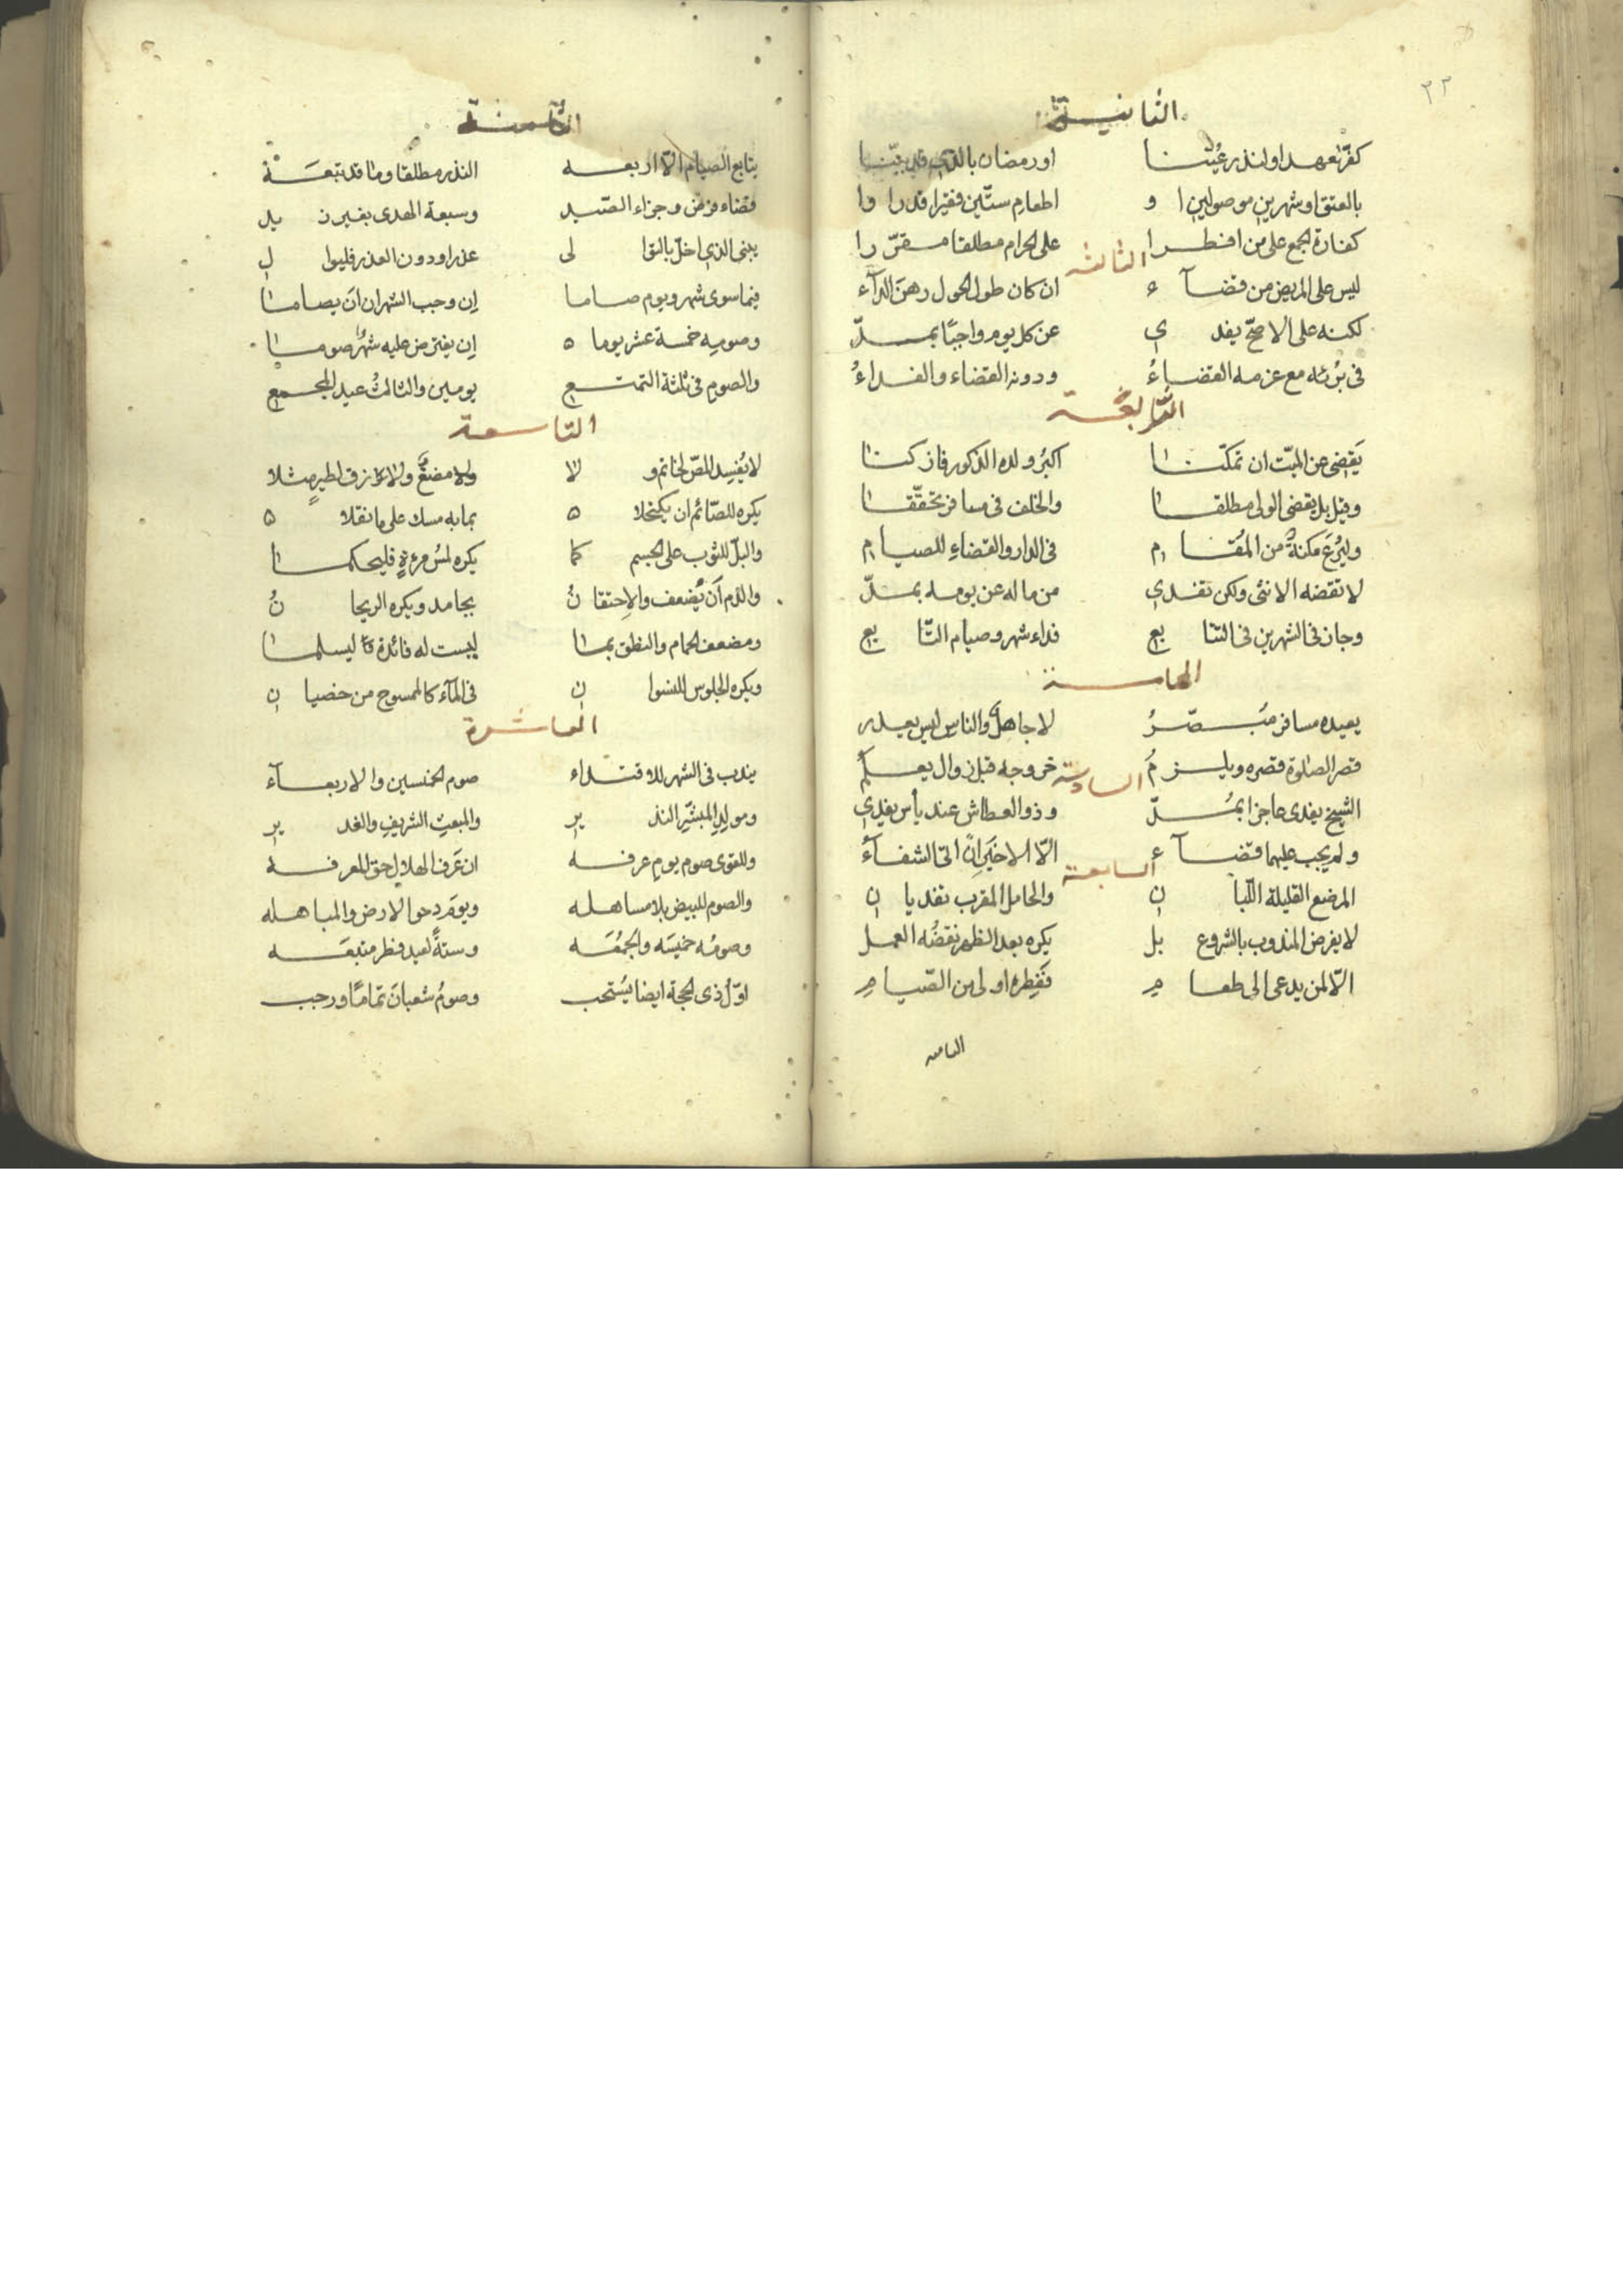 ٣٣
الثانية
كفّر لعهد او لنذر عُيّنا اور رمضان بالذي قد بيّنا
بالعتق او شهرين موصولين او اطعام ستّين فقيرا قدرا وا
كفارة الجمع على من افطرا على الحرام مطلقا مقرّرا
الثالثة
ليس على المريض من قضآء ان كان طول الحول رهن الدآء
لكنه على الاصحّ يفدي عن كل يوم واجبًا بمدّ
فى بُرئه مع عزمه القضاءُ ودونه القضاء والفداءُ
الرّابعة
يَقضى عن الميّت ان تمكّنا اكبرُ ولده الذكور فازكنا
وقيل بل يقضى الولى مطلقا والخلف فى مسافر تحقّقا
وليُرعَ مكنةٌ من المُقام فى الدار والقضاءِ للصيام
لا تقضه الانثى ولكن تفدي من ماله عن يومه بمدّ
وجاز فى الشهرين فى التتابع فداء شهر وصيام التّابع
الخامسة
يعيده مسافر مُبصّرُ لا جاهل والناس ليس يعذر
قصر الصلوة قصره ويلزمُ خروجه قبل زوال يعلمُ
السادسة
الشيخ يفدى عاجزا بمُدّ وذو العطاش عند يأس يفدي
ولم يجب عليهما قضآء الّا الاخيَر انْ اتى الشفآءُ
السابعة
المرضع القليلة اللّبان والحامل المقرب تفديان
لا يفرض المندوب بالشروع بل يكره بعد الظهر نقضُه العمل
الّا لمن يدعى الى طعام ففِطره اولى من الصّيامِ
الثامنه
الثّامنة
يتابع الصيام الّا اربعه النذر مطلقا وما قد تبعَه
قضاء فرض وجزاء الصّيد وسبعة الهدى بغير زيد
يبنى الذي اخلّ بالتوالى عذرا ودون العذر فليوال
فيما سوى شهر ويوم صاما اِن وجب الشهران اَن يصاما
وصومِه خمسة عشر يوما اِن يفترض عليه شهرٌ صوما
والصوم فى ثلثة التمتع يومين والثالثُ عيد المجمع
التاسعة
لا يُفسِد المصّ لخاتم ولا ولا مضغٌ ولا زق لطيرٍ مثلا
يكره للصّائم ان يكتحلا بما به مسك على ما نقلا
والبلّ للثوب على الجسم كما يكره لمسُ مرءةٍ فليحكما
والدم اَن يُضعف والاِحتقانُ بجامد ويكره الريحانُ
ومضعف الحمام والنطق بما ليست له فائدة ليسلما
ويكره الجلوس للنسوان فى المآء كالممسوح من خصيان
العاشرة
يندب فى الشهر للاقتداء صوم الخمسين والاربعآء
ومولدِ المبشّر النذير والمبعث الشريف والغدير
وللقوى صوم يوم عرفه ان عَرف الهلال حق المعرفه
والصوم للبيض بلا مساهله ويومَ دحو الارض والمباهله
وصومُه خميسَه والجمُعَه وستةً لعيد فطر متبعَه
اوّل ذى الحجة ايضا يُستحب وصومُ شعبانَ تمامًا ورجب